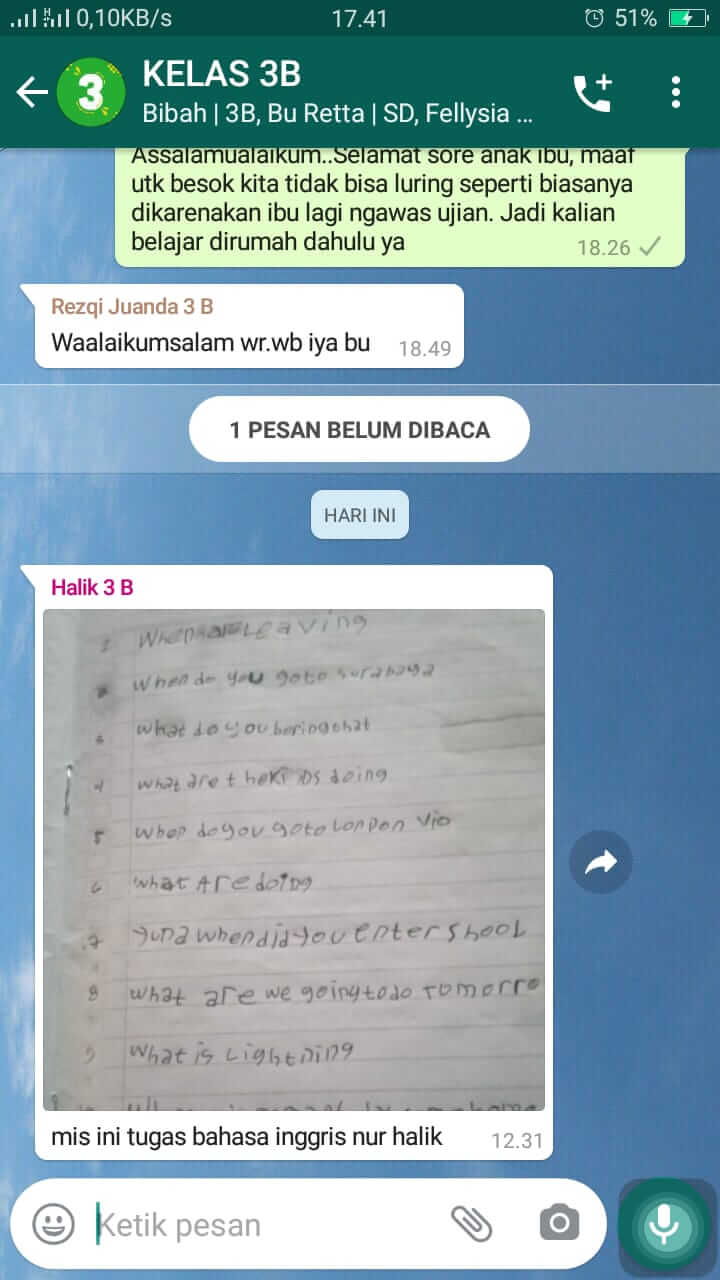 0,10KB/s 17.41 51%
3 KELAS 3B
Bibah | 3B, Bu Retta | SD, Fellysia ...
Assalamualaikum..Selamat sore anak ibu, maaf
utk besok kita tidak bisa luring seperti biasanya
dikarenakan ibu lagi ngawas ujian. Jadi kalian
belajar dirumah dahulu ya 18.26
Rezqi Juanda 3 B
Waalaikumsalam wr.wb iya bu 18.49
1 PESAN BELUM DIBACA
HARI INI
Halik 3 B
Leaving
when do you goto surabaya
what do you boringchat
4 what are theKiDs doing
5 when do you goto LonDon Vio
6 what Are doing
7 yuna when did you enter shool
8 what are we going to do Tomorro
9 what is Lightning
mis ini tugas bahasa inggris nur halik 12.31
Ketik pesan